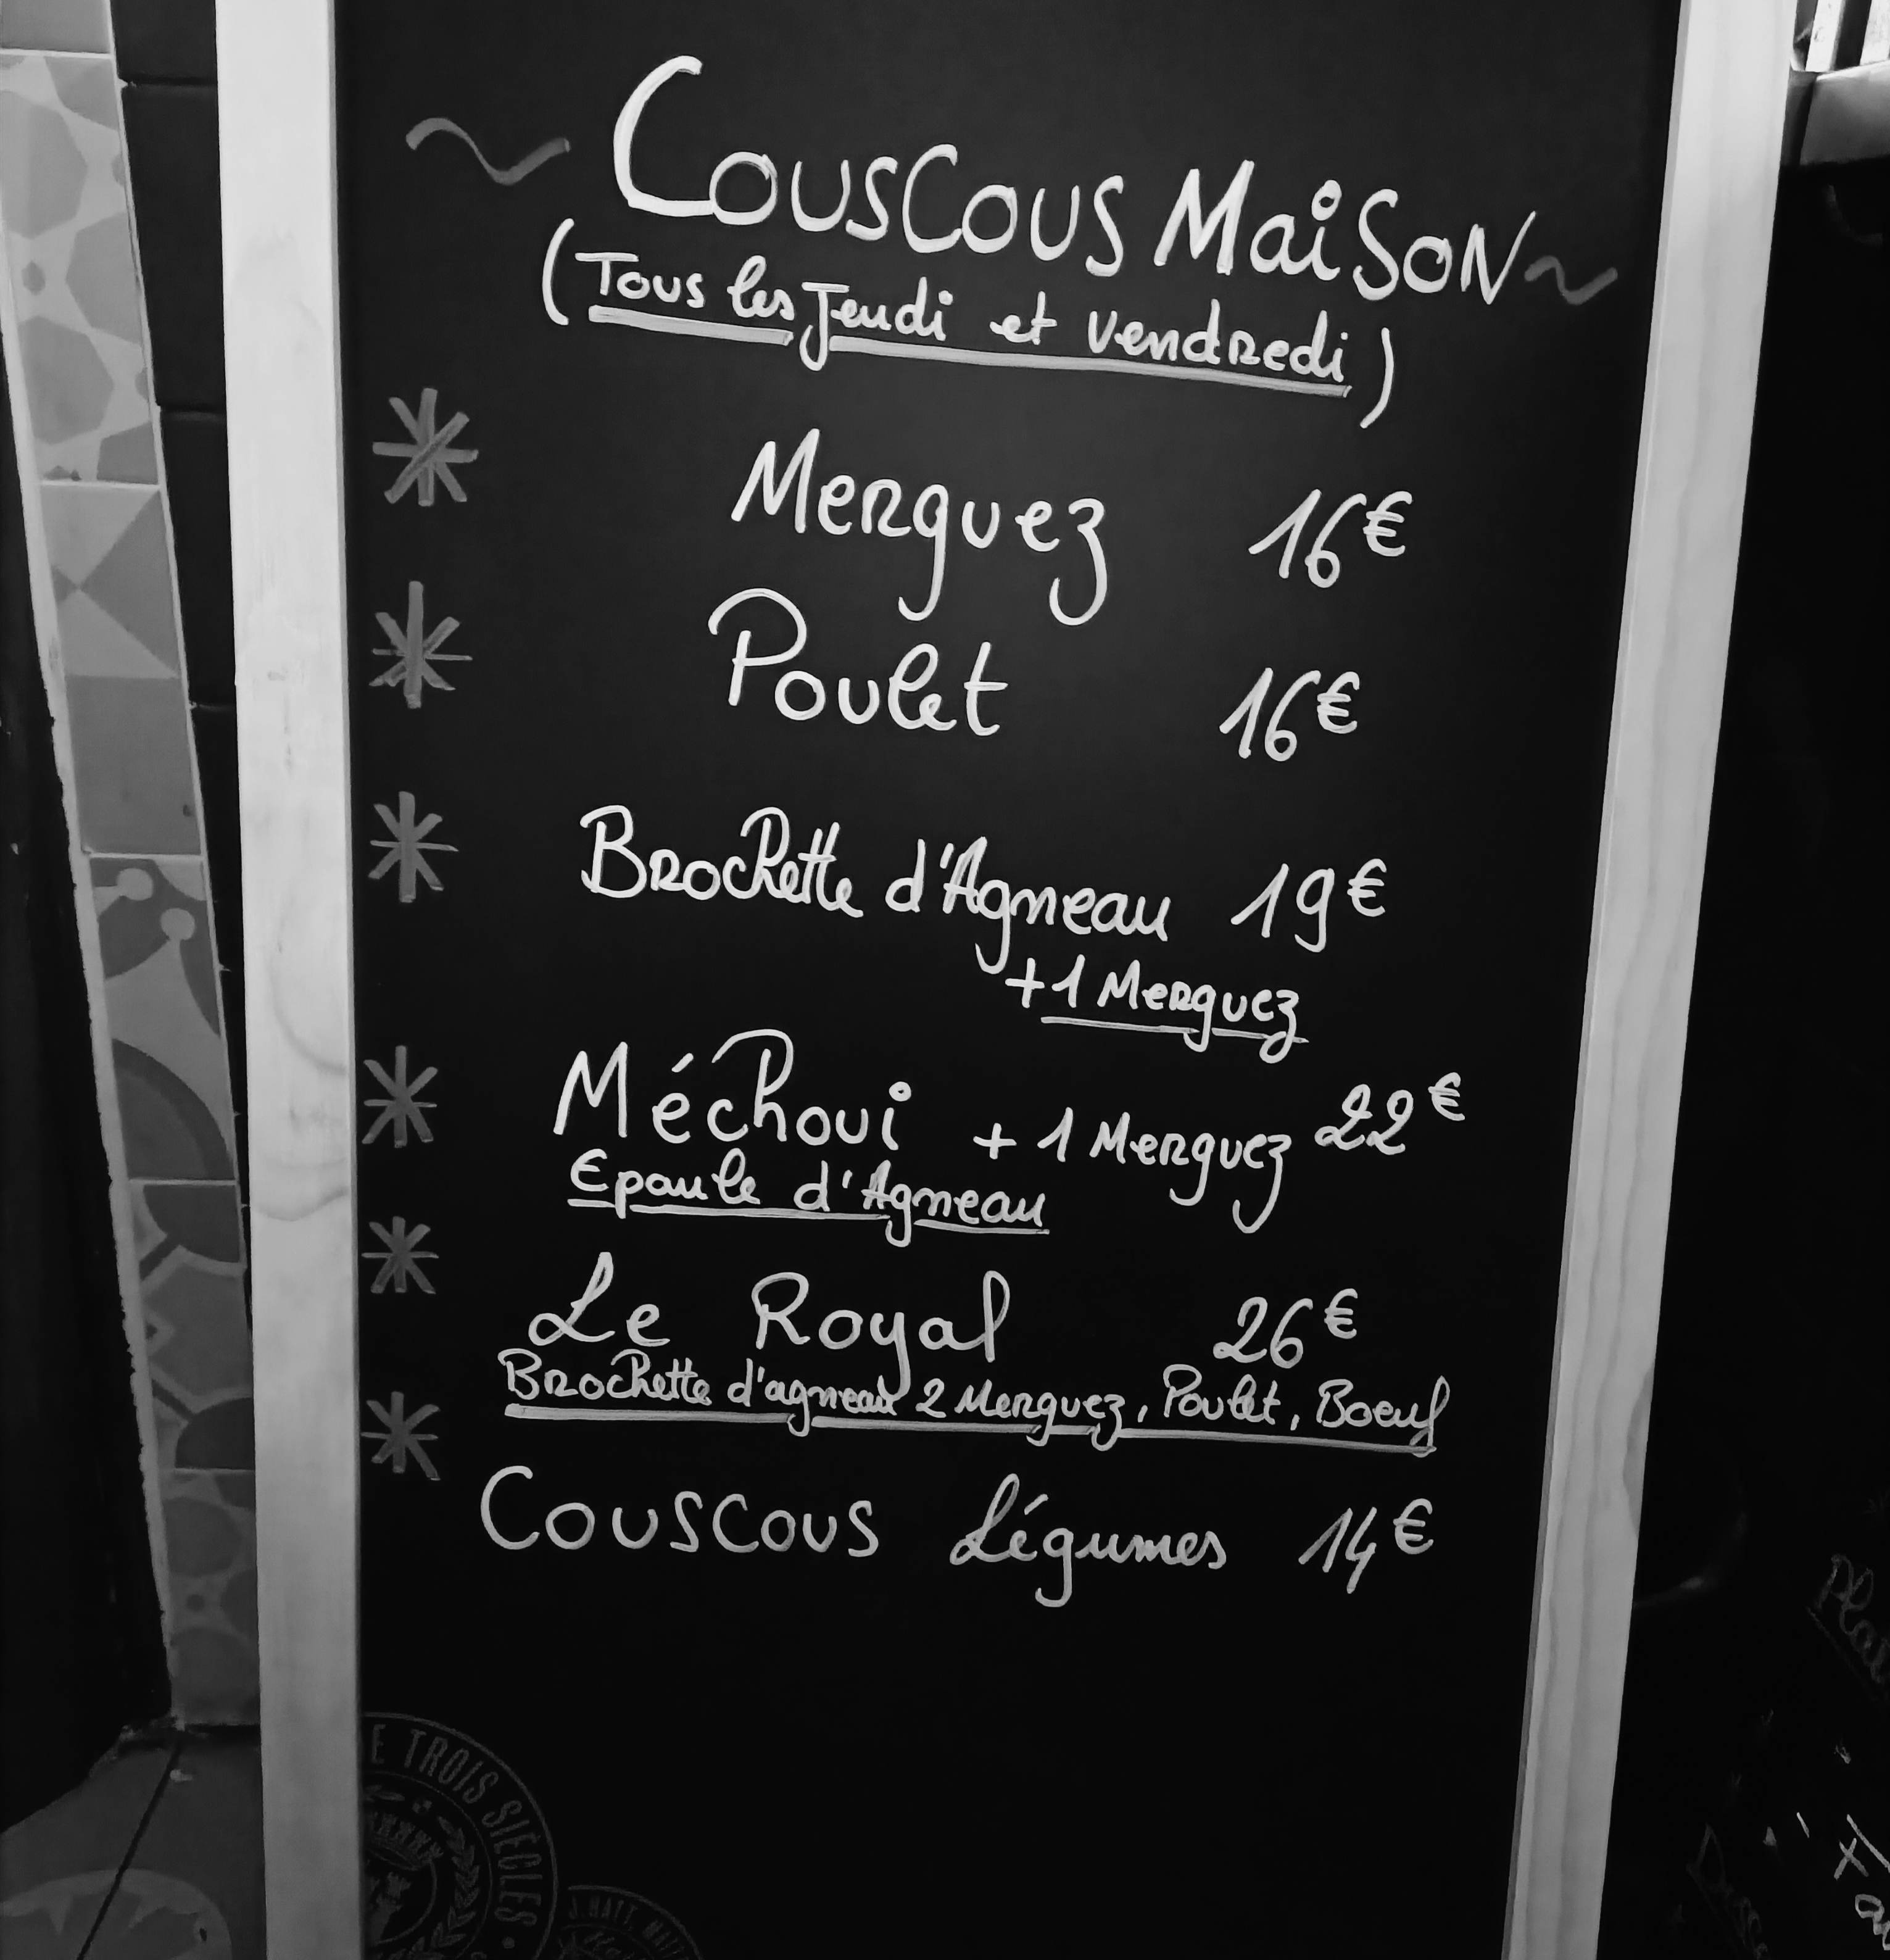 ~ Couscous Maison ~
(Tous les Jeudi et Vendredi)
* Merguez 16€
* Poulet 16€
* Brochette d'Agneau 19€
+1 Merguez
* Méchoui + 1 Merguez 22€
Epaule d'Agneau
* Le Royal 26€
Brochette d'agneau 2 Merguez, Poulet, Boeuf
* Couscous Légumes 14€
E TROIS SIECLES